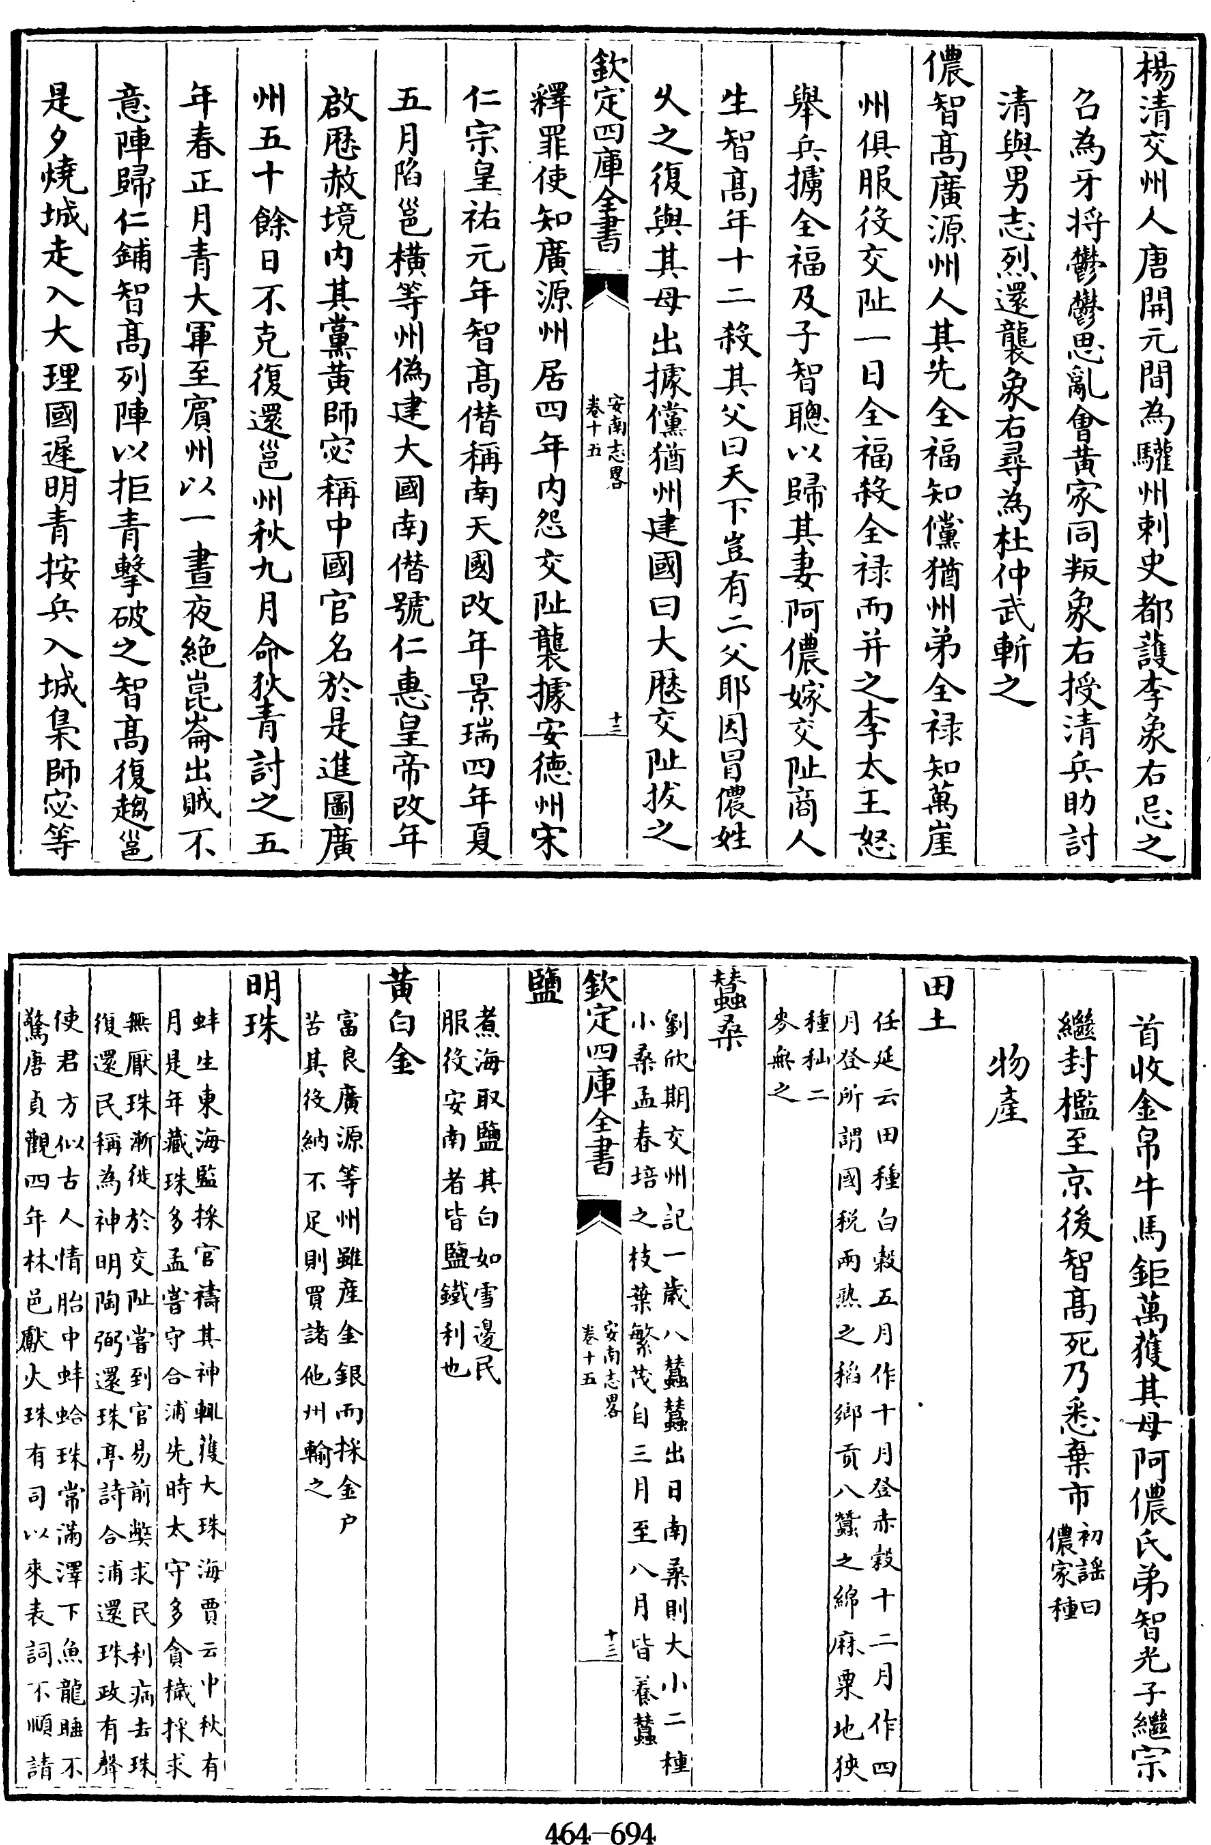 楊清交州人唐開元間為驩州刺史都護李象右忌之
召為牙將鬱鬱思亂㑹黄家同叛象右授清兵助討
清與男志烈還襲象右尋為杜仲武斬之
儂智髙廣源州人其先全福知儻猶州弟全禄知萬崖
州俱服役交阯一日全福殺全禄而并之李太王怒
舉兵擄全福及子智聰以歸其妻阿儂嫁交阯商人
生智髙年十二殺其父曰天下豈有二父耶因冒儂姓
乆之復與其母出據儻猶州建國曰大歴交阯拔之
欽定四庫全書
安南志畧
卷十五
十三
釋罪使知廣源州居四年内怨交阯襲據安徳州宋
仁宗皇祐元年智髙僭稱南天國改年景瑞四年夏
五月陷邕橫等州偽建大國南僭號仁惠皇帝改年
啟歴赦境内其黨黄師宓稱中國官名於是進圖廣
州五十餘日不克復還邕州秋九月命狄青討之五
年春正月青大軍至賓州以一晝夜絶崑崙出賊不
意陣歸仁鋪智髙列陣以拒青擊破之智髙復趨邕
是夕燒城走入大理國遲明青按兵入城梟師宓等
首收金帛牛馬鉅萬獲其母阿儂氏弟智光子繼宗
繼封檻至京後智髙死乃悉棄市
初謡曰
儂家種
物產
田土
任延云田種白穀五月作十月登赤穀十二月作四
月登所謂國税兩熟之稻鄉貢八蠶之綿麻粟地狹
種秈二
麥無之
蠶桑
劉欣期交州記一歲八蠶蠶出日南桑則大小二種
小桑孟春培之枝葉繁茂自三月至八月皆養蠶
欽定四庫全書
安南志畧
卷十五
十三
鹽
煮海取鹽其白如雪邊民
服役安南者皆鹽鐵利也
黄白金
富良廣源等州雖産金銀而採金户
苦其役納不足則買諸他州輸之
明珠
蚌生東海監採官禱其神輒獲大珠海賈云中秋有
月是年藏珠多孟嘗守合浦先時太守多貪穢採求
無厭珠漸徙於交阯嘗到官易前弊求民利病去珠
復還民稱為神明陶弼還珠亭詩合浦還珠政有聲
使君方似古人情胎中蚌蛤珠常滿澤下魚龍睡不
驚唐貞觀四年林邑獻火珠有司以來表詞不順請
464-694